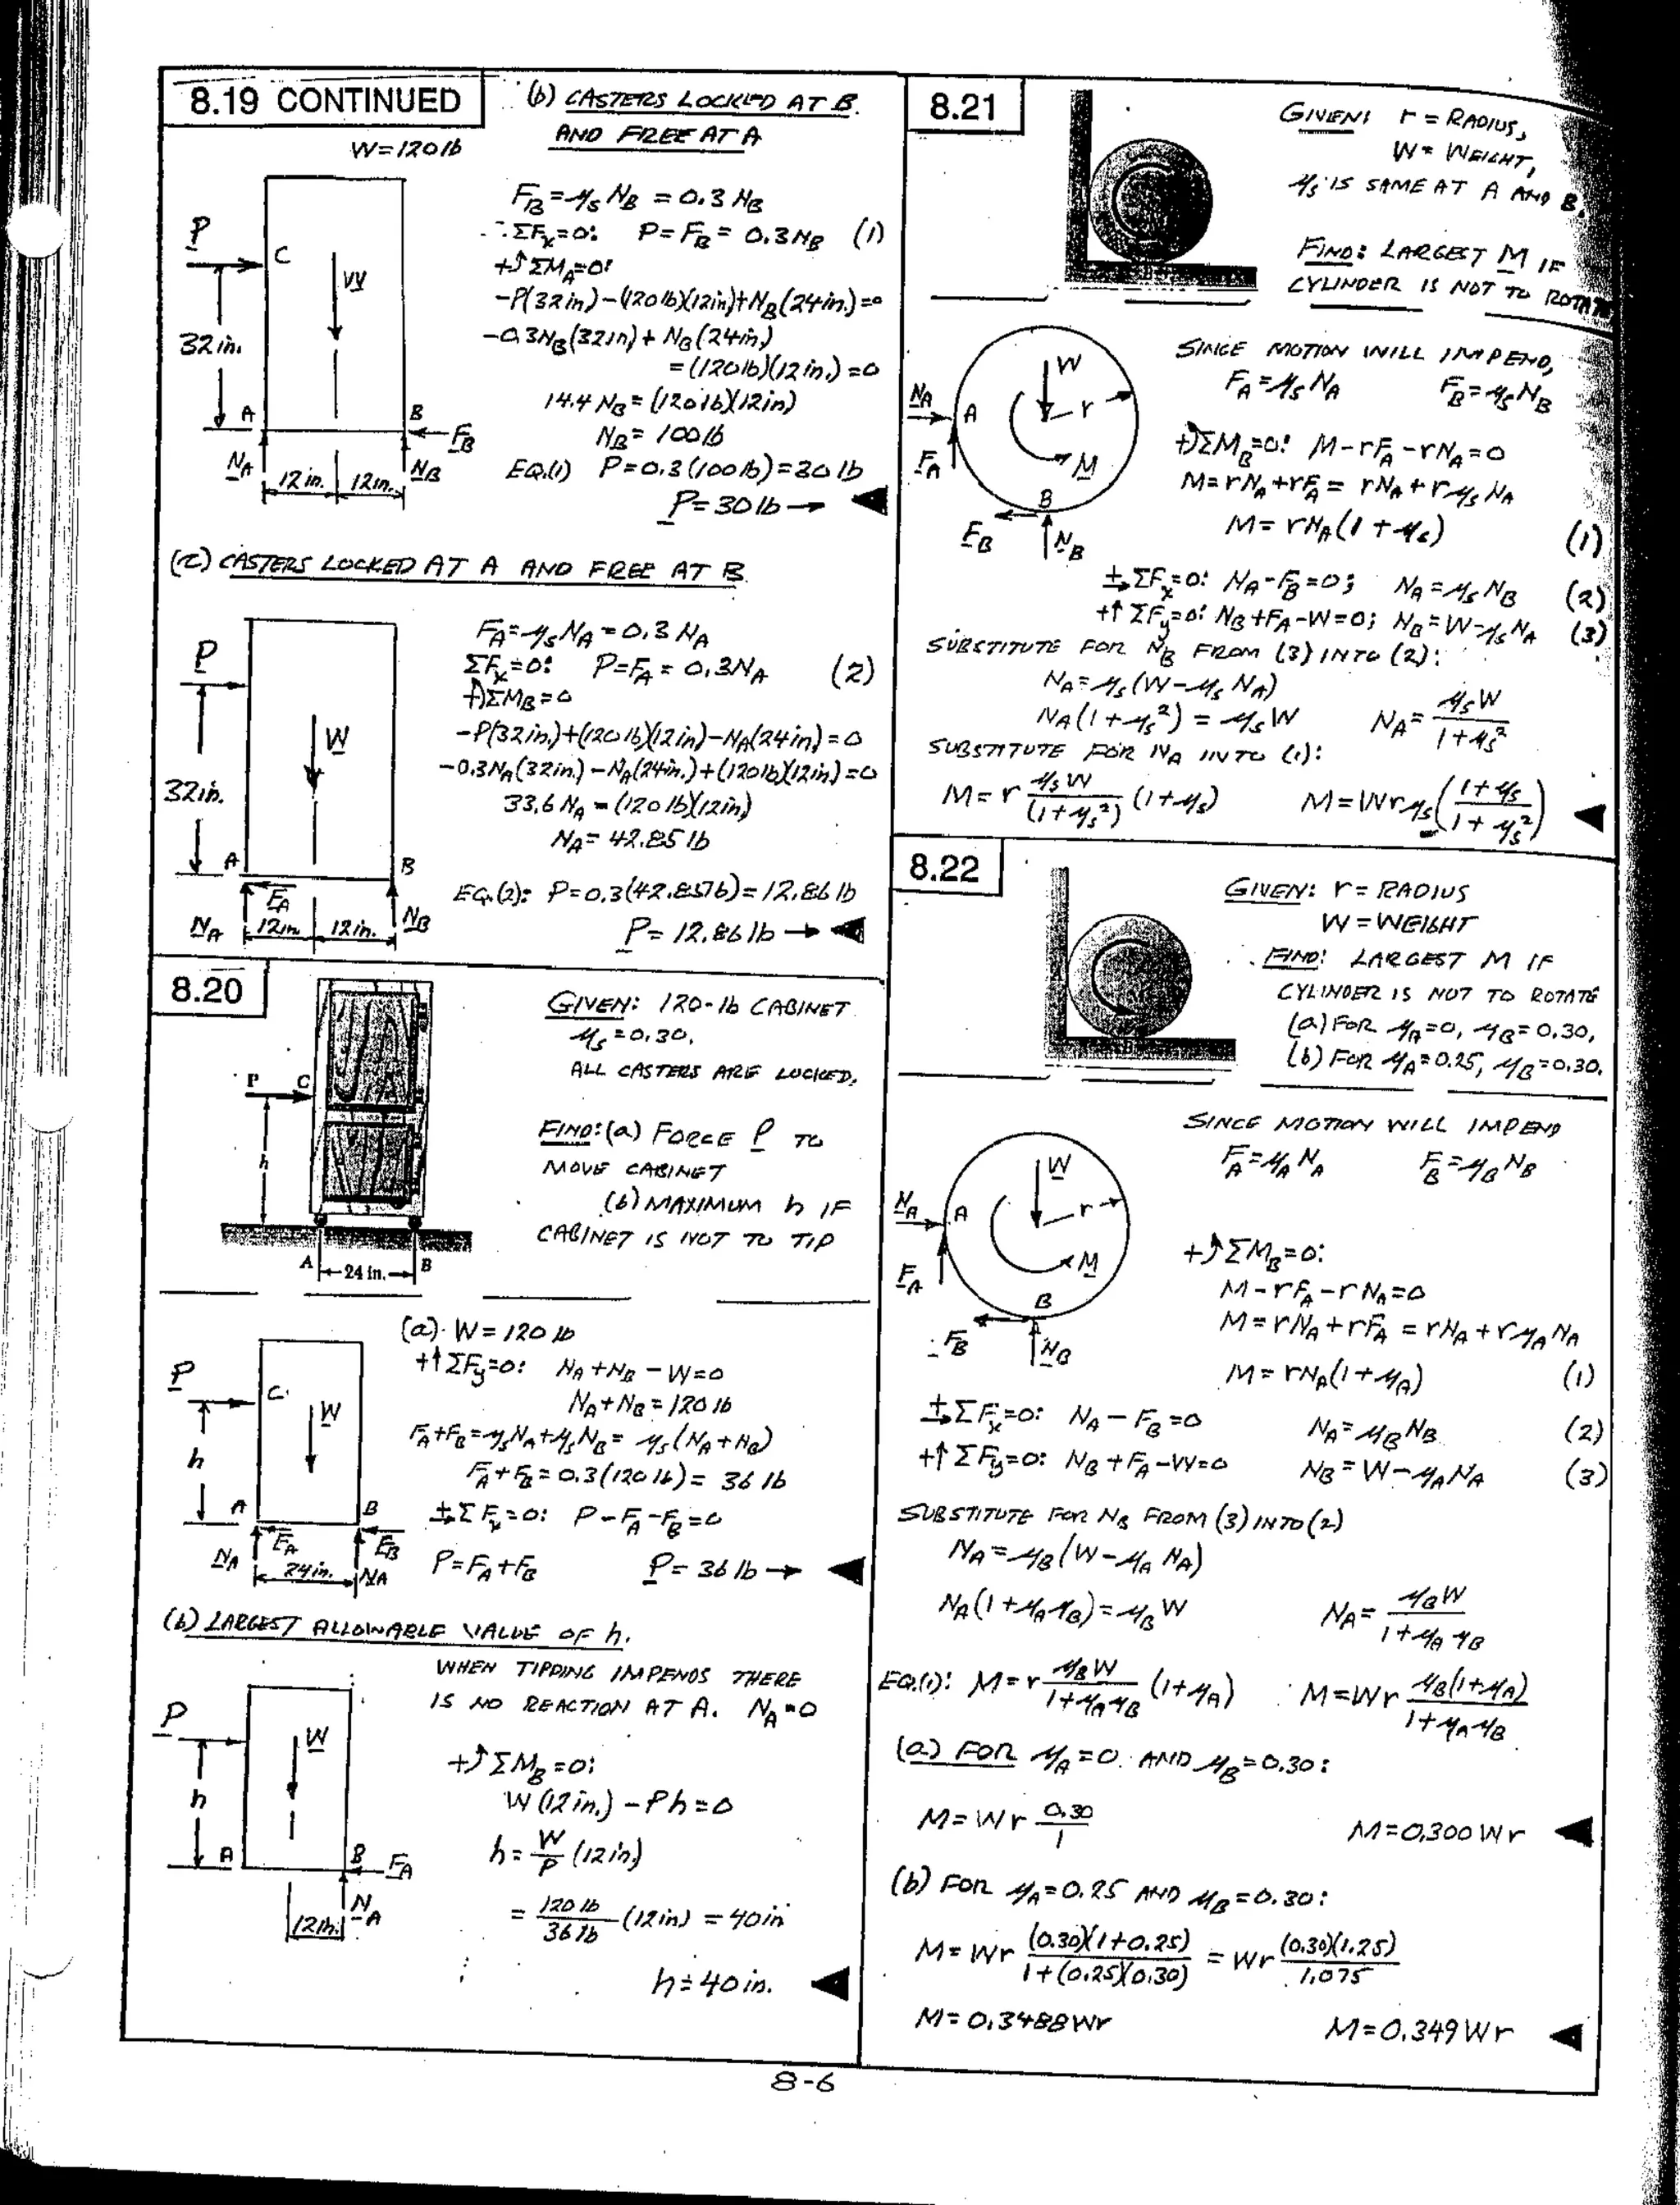 8.19 CONTINUED
(b) CASTERS LOCKED AT B.
AND FREE AT A
W=120 lb
P
C
W
32 in.
A
B
F_B
N_A
N_B
12 in.
12 in.
F_B = μ_s N_B = 0.3 N_B
ΣF_x=0: P= F_B = 0.3 N_B (1)
+↺ ΣM_A=0:
-P(32 in)-(120 lb)(12 in)+N_B(24 in.)=0
-0.3N_B(32 in)+ N_B(24 in.)
= (120 lb)(12 in.) = 0
14.4 N_B = (120 lb)(12 in)
N_B = 100 lb
EQ.(1) P=0.3(100 lb)=30 lb
P= 30 lb → ◀
(c) CASTERS LOCKED AT A AND FREE AT B.
P
W
32 in.
A
B
F_A
N_A
12 in.
12 in.
N_B
F_A = μ_s N_A = 0.3 N_A
ΣF_x=0: P=F_A = 0.3N_A (2)
+↺ΣM_B=0
-P(32 in.)+(120 lb)(12 in)-N_A(24 in)=0
-0.3N_A(32 in.)-N_A(24 in.)+(120 lb)(12 in)=0
33.6 N_A = (120 lb)(12 in)
N_A = 42.85 lb
EQ.(2): P=0.3(42.85 lb)=12.86 lb
P= 12.86 lb → ◀
8.20
P
C
h
A
24 in.
B
GIVEN: 120-lb CABINET
μ_s = 0.30,
ALL CASTERS ARE LOCKED.
FIND: (a) FORCE P TO
MOVE CABINET
(b) MAXIMUM h IF
CABINET IS NOT TO TIP
P
C
W
h
A
B
F_A
F_B
N_A
24 in.
N_A
(a) W=120 lb
+↑ΣF_y=0: N_A+N_B-W=0
N_A+N_B=120 lb
F_A+F_B=μ_s N_A+μ_s N_B= μ_s (N_A+N_B)
F_A+F_B = 0.3(120 lb)= 36 lb
+→ ΣF_x=0: P-F_A-F_B=0
P=F_A+F_B P= 36 lb → ◀
(b) LARGEST ALLOWABLE VALUE OF h.
WHEN TIPPING IMPENDS THERE
IS NO REACTION AT A. N_A=0
P
W
h
A
B
F_A
N_A
12 in.
+↺ΣM_B=0:
W(12 in.)-Ph=0
h = W/P (12 in)
= 120 lb/36 lb (12 in) = 40 in
h = 40 in. ◀
8.21
GIVEN: r = RADIUS,
W = WEIGHT,
μ_s IS SAME AT A AND B.
FIND: LARGEST M IF
CYLINDER IS NOT TO ROTATE
W
r
N_A
A
F_A
M
B
F_B
N_B
SINCE MOTION WILL IMPEND,
F_A=μ_s N_A F_B=μ_s N_B
+↺ΣM_B=0: M-rF_A-rN_A=0
M=rN_A+rF_A= rN_A+rμ_s N_A
M= rN_A(1+μ_s) (1)
+→ΣF_x=0: N_A-F_B=0; N_A=μ_s N_B (2)
+↑ΣF_y=0: N_B+F_A-W=0; N_B=W-μ_s N_A (3)
SUBSTITUTE FOR N_B FROM (3) INTO (2):
N_A=μ_s(W-μ_s N_A)
N_A(1+μ_s²) = μ_s W N_A= μ_s W/(1+μ_s²)
SUBSTITUTE FOR N_A INTO (1):
M= r μ_s W/(1+μ_s²) (1+μ_s) M=Wrμ_s((1+μ_s)/(1+μ_s²)) ◀
8.22
GIVEN: r = RADIUS
W = WEIGHT
FIND: LARGEST M IF
CYLINDER IS NOT TO ROTATE
(a) FOR μ_A=0, μ_B=0.30,
(b) FOR μ_A=0.25, μ_B=0.30.
W
r
N_A
A
F_A
M
B
F_B
N_B
SINCE MOTION WILL IMPEND
F_A=μ_A N_A F_B=μ_B N_B
+↺ΣM_B=0:
M-rF_A-rN_A=0
M=rN_A+rF_A=rN_A+rμ_A N_A
M= rN_A(1+μ_A) (1)
+→ΣF_x=0: N_A-F_B=0 N_A=μ_B N_B (2)
+↑ΣF_y=0: N_B+F_A-W=0 N_B=W-μ_A N_A (3)
SUBSTITUTE FOR N_B FROM (3) INTO (2)
N_A=μ_B(W-μ_A N_A)
N_A(1+μ_A μ_B)=μ_B W N_A= μ_B W/(1+μ_A μ_B)
EQ.(1): M=r μ_B W/(1+μ_A μ_B) (1+μ_A) M=Wr μ_B(1+μ_A)/(1+μ_A μ_B)
(a) FOR μ_A=0 AND μ_B=0.30:
M=Wr 0.30/1 M=0.300 Wr ◀
(b) FOR μ_A=0.25 AND μ_B=0.30:
M= Wr (0.30)(1+0.25)/(1+(0.25)(0.30)) = Wr (0.30)(1.25)/1.075
M=0.3488Wr M=0.349Wr ◀
8-6